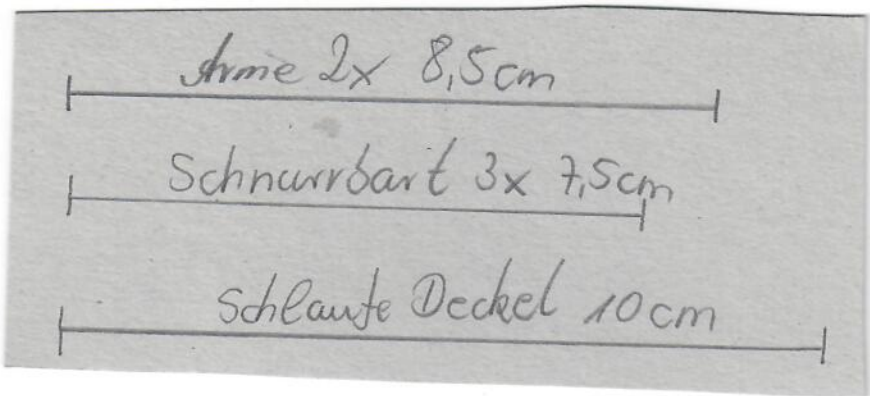 Arme 2x 8,5cm
Schnurrbart 3x 7,5cm
Schlaufe Deckel 10cm